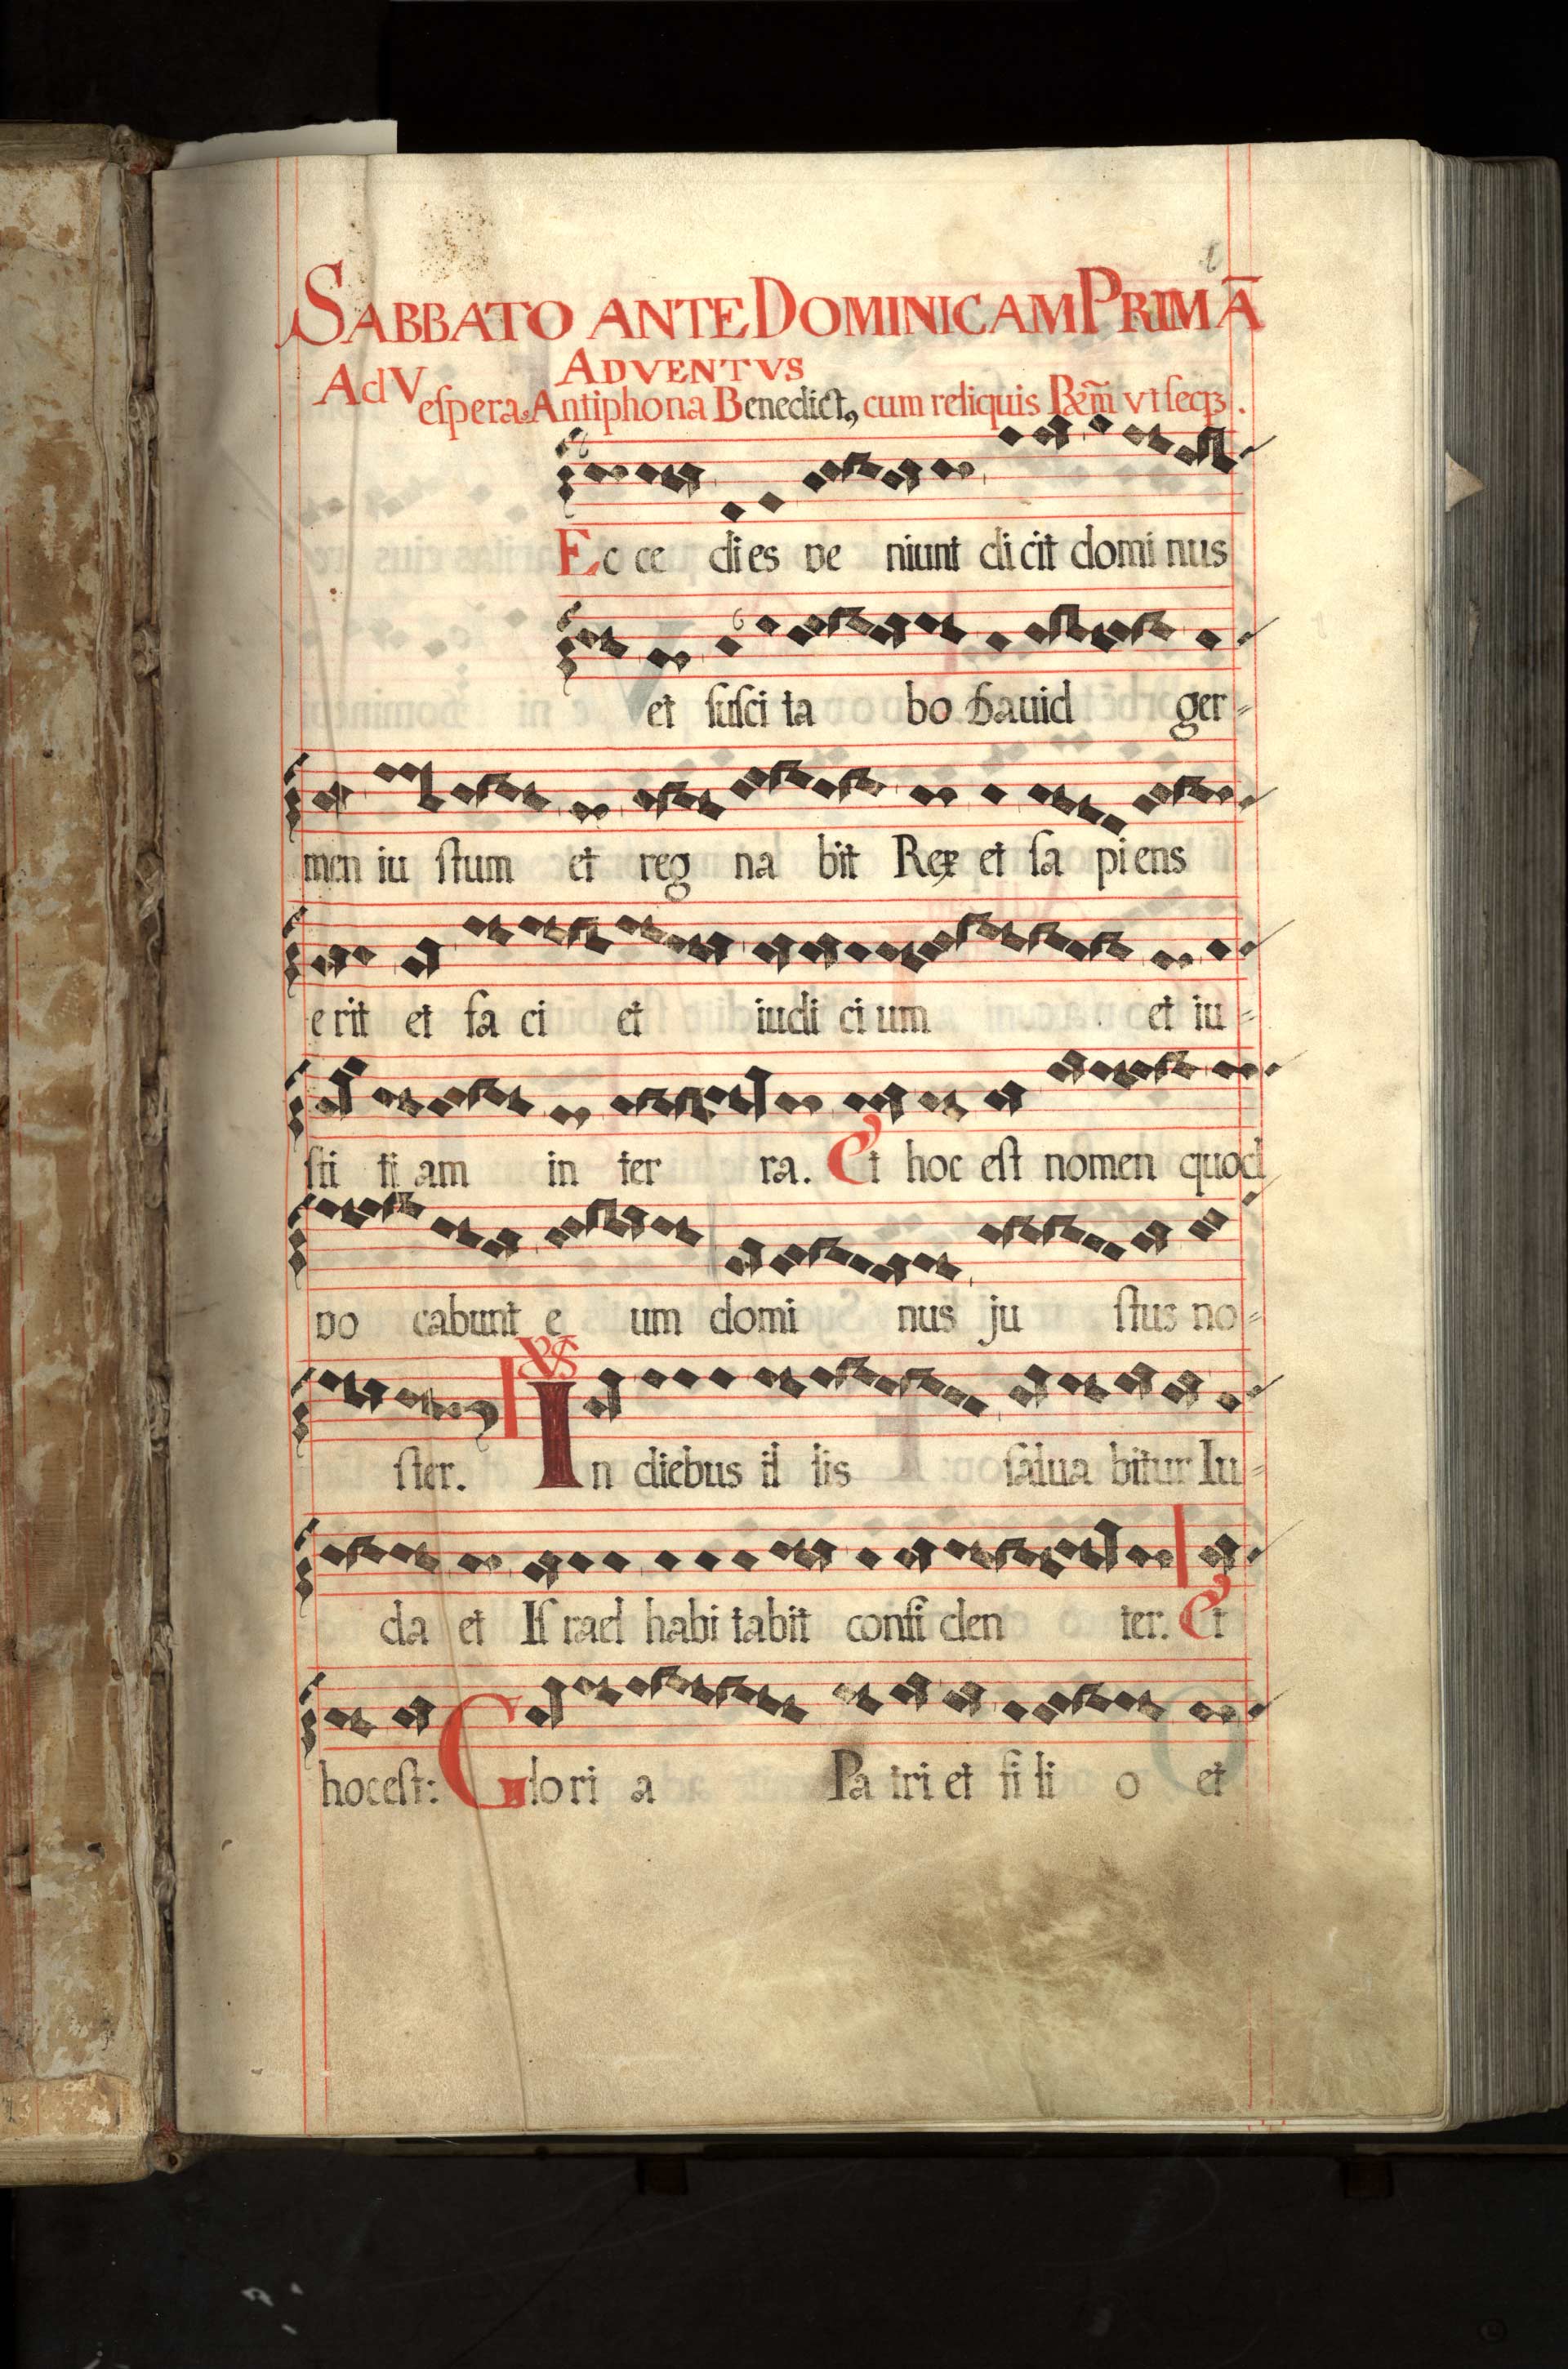 SABBATO ANTE DOMINICAM PRIMĀ
ADVENTVS
Ad Veſpera. Antiphona Benedict9 cum reliquis
Ec ce di es ve niunt di cit domi nus
et ſuſci ta bo Dauid ger=
men iu ſtum et reg na bit Rex et ſa pi ens
e rit et fa ci et iudi ci um et iu=
ſti ti am in ter ra. Et hoc eſt nomen quod
vo cabunt e um domi nus ju ſtus no=
ſter. In diebus il lis ſalua bitur Iu=
da et Iſ rael habi tabit confi den ter. Et
hoc eſt: Glo ri a Pa tri et fi li o et